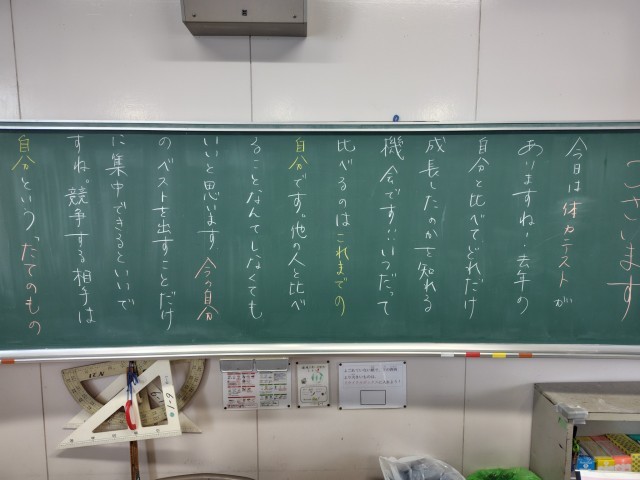 ございます
今日は体力テストが
ありますね!去年の
自分と比べてどれだけ
成長したのかを知れる
機会です!!いつだって
比べるのはこれまでの
自分です。他の人と比べ
ることなんてしなくても
いいと思います 今の自分
のベストを出すことだけ
に集中できるといいで
すね。競争する相手は
自分というったてのもの
6-1